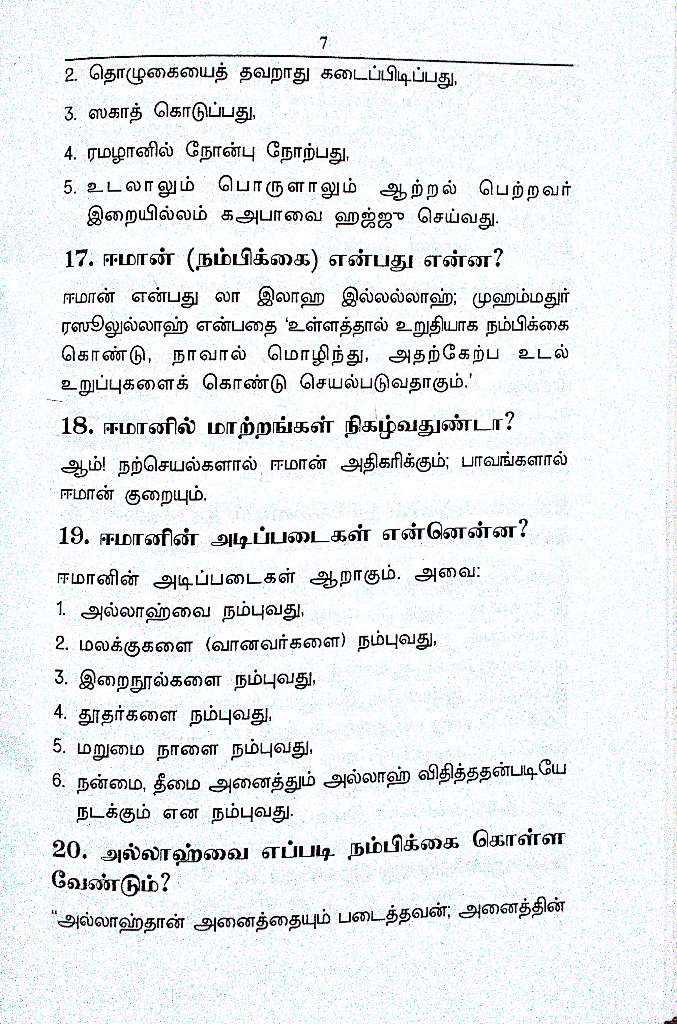 7
2. தொழுகையைத் தவறாது கடைப்பிடிப்பது,
3. ஸகாத் கொடுப்பது,
4. ரமழானில் நோன்பு நோற்பது,
5. உடலாலும் பொருளாலும் ஆற்றல் பெற்றவர்
இறையில்லம் கஅபாவை ஹஜ்ஜு செய்வது.
17. ஈமான் (நம்பிக்கை) என்பது என்ன?
ஈமான் என்பது லா இலாஹ இல்லல்லாஹ்; முஹம்மதுர்
ரஸூலுல்லாஹ் என்பதை ‘உள்ளத்தால் உறுதியாக நம்பிக்கை
கொண்டு, நாவால் மொழிந்து, அதற்கேற்ப உடல்
உறுப்புகளைக் கொண்டு செயல்படுவதாகும்.’
18. ஈமானில் மாற்றங்கள் நிகழ்வதுண்டா?
ஆம்! நற்செயல்களால் ஈமான் அதிகரிக்கும்; பாவங்களால்
ஈமான் குறையும்.
19. ஈமானின் அடிப்படைகள் என்னென்ன?
ஈமானின் அடிப்படைகள் ஆறாகும். அவை:
1. அல்லாஹ்வை நம்புவது,
2. மலக்குகளை (வானவர்களை) நம்புவது,
3. இறைநூல்களை நம்புவது,
4. தூதர்களை நம்புவது,
5. மறுமை நாளை நம்புவது,
6. நன்மை, தீமை அனைத்தும் அல்லாஹ் விதித்ததன்படியே
நடக்கும் என நம்புவது.
20. அல்லாஹ்வை எப்படி நம்பிக்கை கொள்ள
வேண்டும்?
“அல்லாஹ்தான் அனைத்தையும் படைத்தவன்; அனைத்தின்